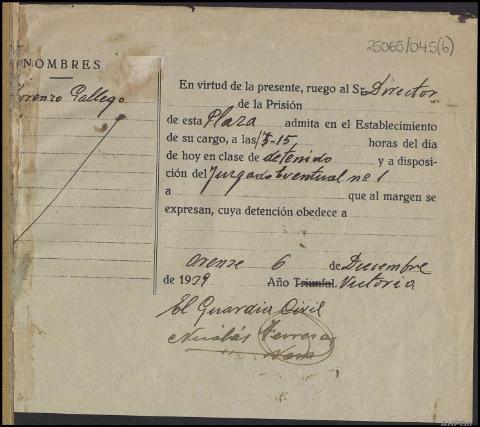 25065/045(6)
NOMBRES
Lorenzo Gallego
En virtud de la presente, ruego al Sr. Director
de la Prisión
de esta Plaza admita en el Establecimiento
de su cargo, a las 17-15 horas del día
de hoy en clase de detenido y a disposi-
ción del Juzgado Eventual nº 1
a que al margen se
expresan, cuya detención obedece a
Orense 6 de Diciembre
de 1939 Año Triunfal. Victoria
El Guardia Civil
Nicolás Ferrera